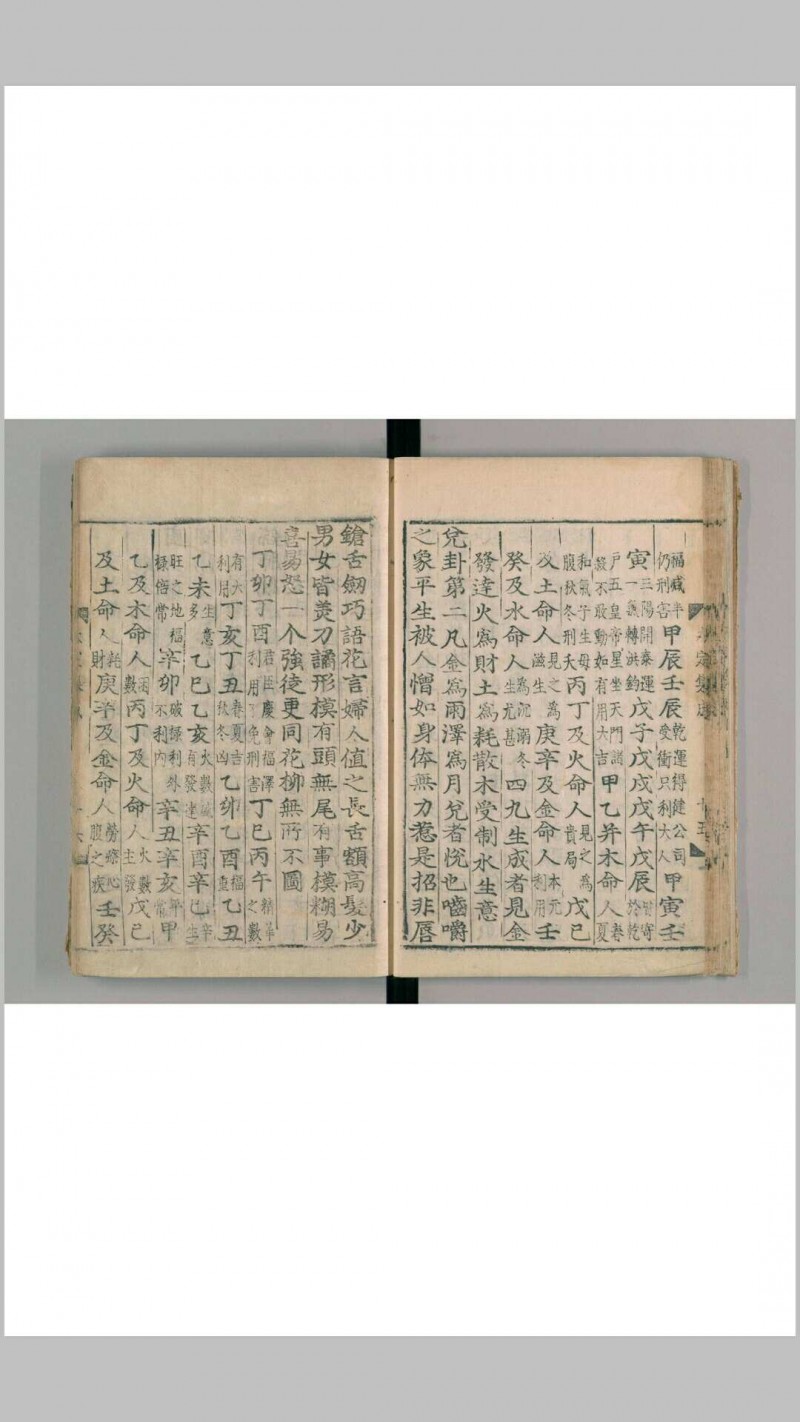 福威平仍刑害甲辰壬辰乾運得健公司受衝只利大人甲寅壬
寅三陽開泰運一氣轉洪鈞戊子戊戌戊午戊辰
户五皇帝星坐天門諸煞不敢動如有用大吉甲乙并木命人春夏
和氣子生母腹秋冬刑夭丙丁及火命人見之為貴局戊己
及土命人見之為滋生庚辛及金命人本元利用壬
癸及水命人為沉溺冬生尤甚四九生成者見金
發達火爲財土爲耗散木受制水生意
兌卦第二凡金爲雨澤爲月兌者悅也嚙嚼
之象平生被人憎如身体無力惹是招非唇
鎗舌劒巧語花言婦人值之長舌額高髮少
男女皆羨刀譎形模有頭無尾有事模糊易
喜易怒一个強徒更同花柳無所不圖
丁卯丁酉君臣慶會福澤利用丁免刑害丁巳丙午精華之數
有大利用丁亥丁丑春夏吉秋冬凶乙卯乙酉福重乙丑
乙未生意多乙巳乙亥火數有發達辛酉辛巳
旺之地福祿倍常辛卯破諒利外不利内辛丑辛亥平常甲
乙及木命人兩數丙丁及火命人火數主發戊己
及土命人耗財庚辛及金命人勞瘵心腹之疾壬癸